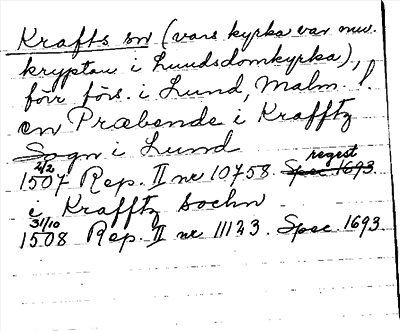 Krafts sn (vars kyrka var nuv.
kryptan i Lundsdomkyrka),
förr förs. i Lund, Malm. l.
en Præbende i Krafftz
Sogn i Lund
2/2 regest
1507 Rep. II nr 10758. Spec 1693
i Krafftz sochn
31/10
1508 Rep. II nr 11123. Spec. 1693